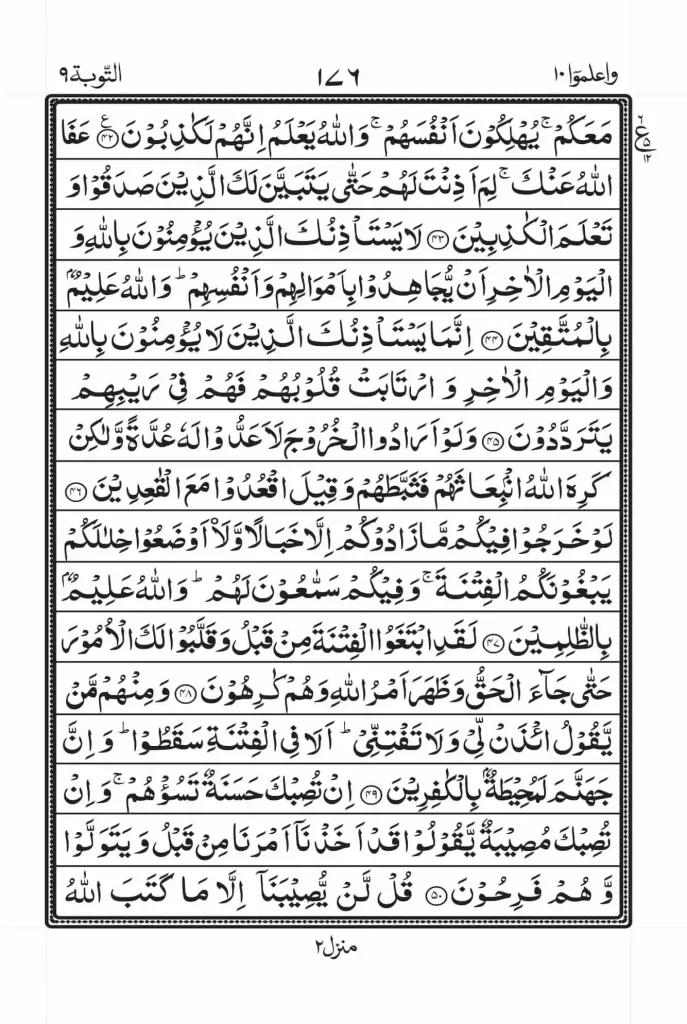 واعلموٓا ١٠
١٧٦
التّوبة ٩
مَعَكُمْ ۚ يُهْلِكُوْنَ اَنْفُسَهُمْ ۚ وَاللّٰهُ يَعْلَمُ اِنَّهُمْ لَكٰذِبُوْنَ ﴿۴۲﴾ ع عَفَا
اللّٰهُ عَنْكَ ۚ لِمَ اَذِنْتَ لَهُمْ حَتّٰى يَتَبَيَّنَ لَكَ الَّذِيْنَ صَدَقُوْا وَ
تَعْلَمَ الْكٰذِبِيْنَ ﴿۴۳﴾ لَا يَسْتَاْذِنُكَ الَّذِيْنَ يُؤْمِنُوْنَ بِاللّٰهِ وَ
الْيَوْمِ الْاٰخِرِ اَنْ يُّجَاهِدُوْا بِاَمْوَالِهِمْ وَاَنْفُسِهِمْ ؕ وَاللّٰهُ عَلِيْمٌۢ
بِالْمُتَّقِيْنَ ﴿۴۴﴾ اِنَّمَا يَسْتَاْذِنُكَ الَّذِيْنَ لَا يُؤْمِنُوْنَ بِاللّٰهِ
وَالْيَوْمِ الْاٰخِرِ وَ ارْتَابَتْ قُلُوْبُهُمْ فَهُمْ فِيْ رَيْبِهِمْ
يَتَرَدَّدُوْنَ ﴿۴۵﴾ وَلَوْ اَرَادُوا الْخُرُوْجَ لَاَعَدُّوْا لَهٗ عُدَّةً وَّلٰكِنْ
كَرِهَ اللّٰهُ انْۢبِعَاثَهُمْ فَثَبَّطَهُمْ وَقِيْلَ اقْعُدُوْا مَعَ الْقٰعِدِيْنَ ﴿۴۶﴾
لَوْ خَرَجُوْا فِيْكُمْ مَّا زَادُوْكُمْ اِلَّا خَبَالًا وَّلَا۟اَوْضَعُوْا خِلٰلَكُمْ
يَبْغُوْنَكُمُ الْفِتْنَةَ ۚ وَفِيْكُمْ سَمّٰعُوْنَ لَهُمْ ؕ وَاللّٰهُ عَلِيْمٌۢ
بِالظّٰلِمِيْنَ ﴿۴۷﴾ لَقَدِ ابْتَغَوُا الْفِتْنَةَ مِنْ قَبْلُ وَقَلَّبُوْا لَكَ الْاُمُوْرَ
حَتّٰى جَآءَ الْحَقُّ وَظَهَرَ اَمْرُ اللّٰهِ وَهُمْ كٰرِهُوْنَ ﴿۴۸﴾ وَمِنْهُمْ مَّنْ
يَّقُوْلُ ائْذَنْ لِّيْ وَلَا تَفْتِنِّيْ ؕ اَلَا فِي الْفِتْنَةِ سَقَطُوْا ؕ وَاِنَّ
جَهَنَّمَ لَمُحِيْطَةٌۢ بِالْكٰفِرِيْنَ ﴿۴۹﴾ اِنْ تُصِبْكَ حَسَنَةٌ تَسُؤْهُمْ ۚ وَاِنْ
تُصِبْكَ مُصِيْبَةٌ يَّقُوْلُوْا قَدْ اَخَذْنَاۤ اَمْرَنَا مِنْ قَبْلُ وَيَتَوَلَّوْا
وَّهُمْ فَرِحُوْنَ ﴿۵۰﴾ قُلْ لَّنْ يُّصِيْبَنَاۤ اِلَّا مَا كَتَبَ اللّٰهُ
٦
ع
٥
١٢
منزل ٢